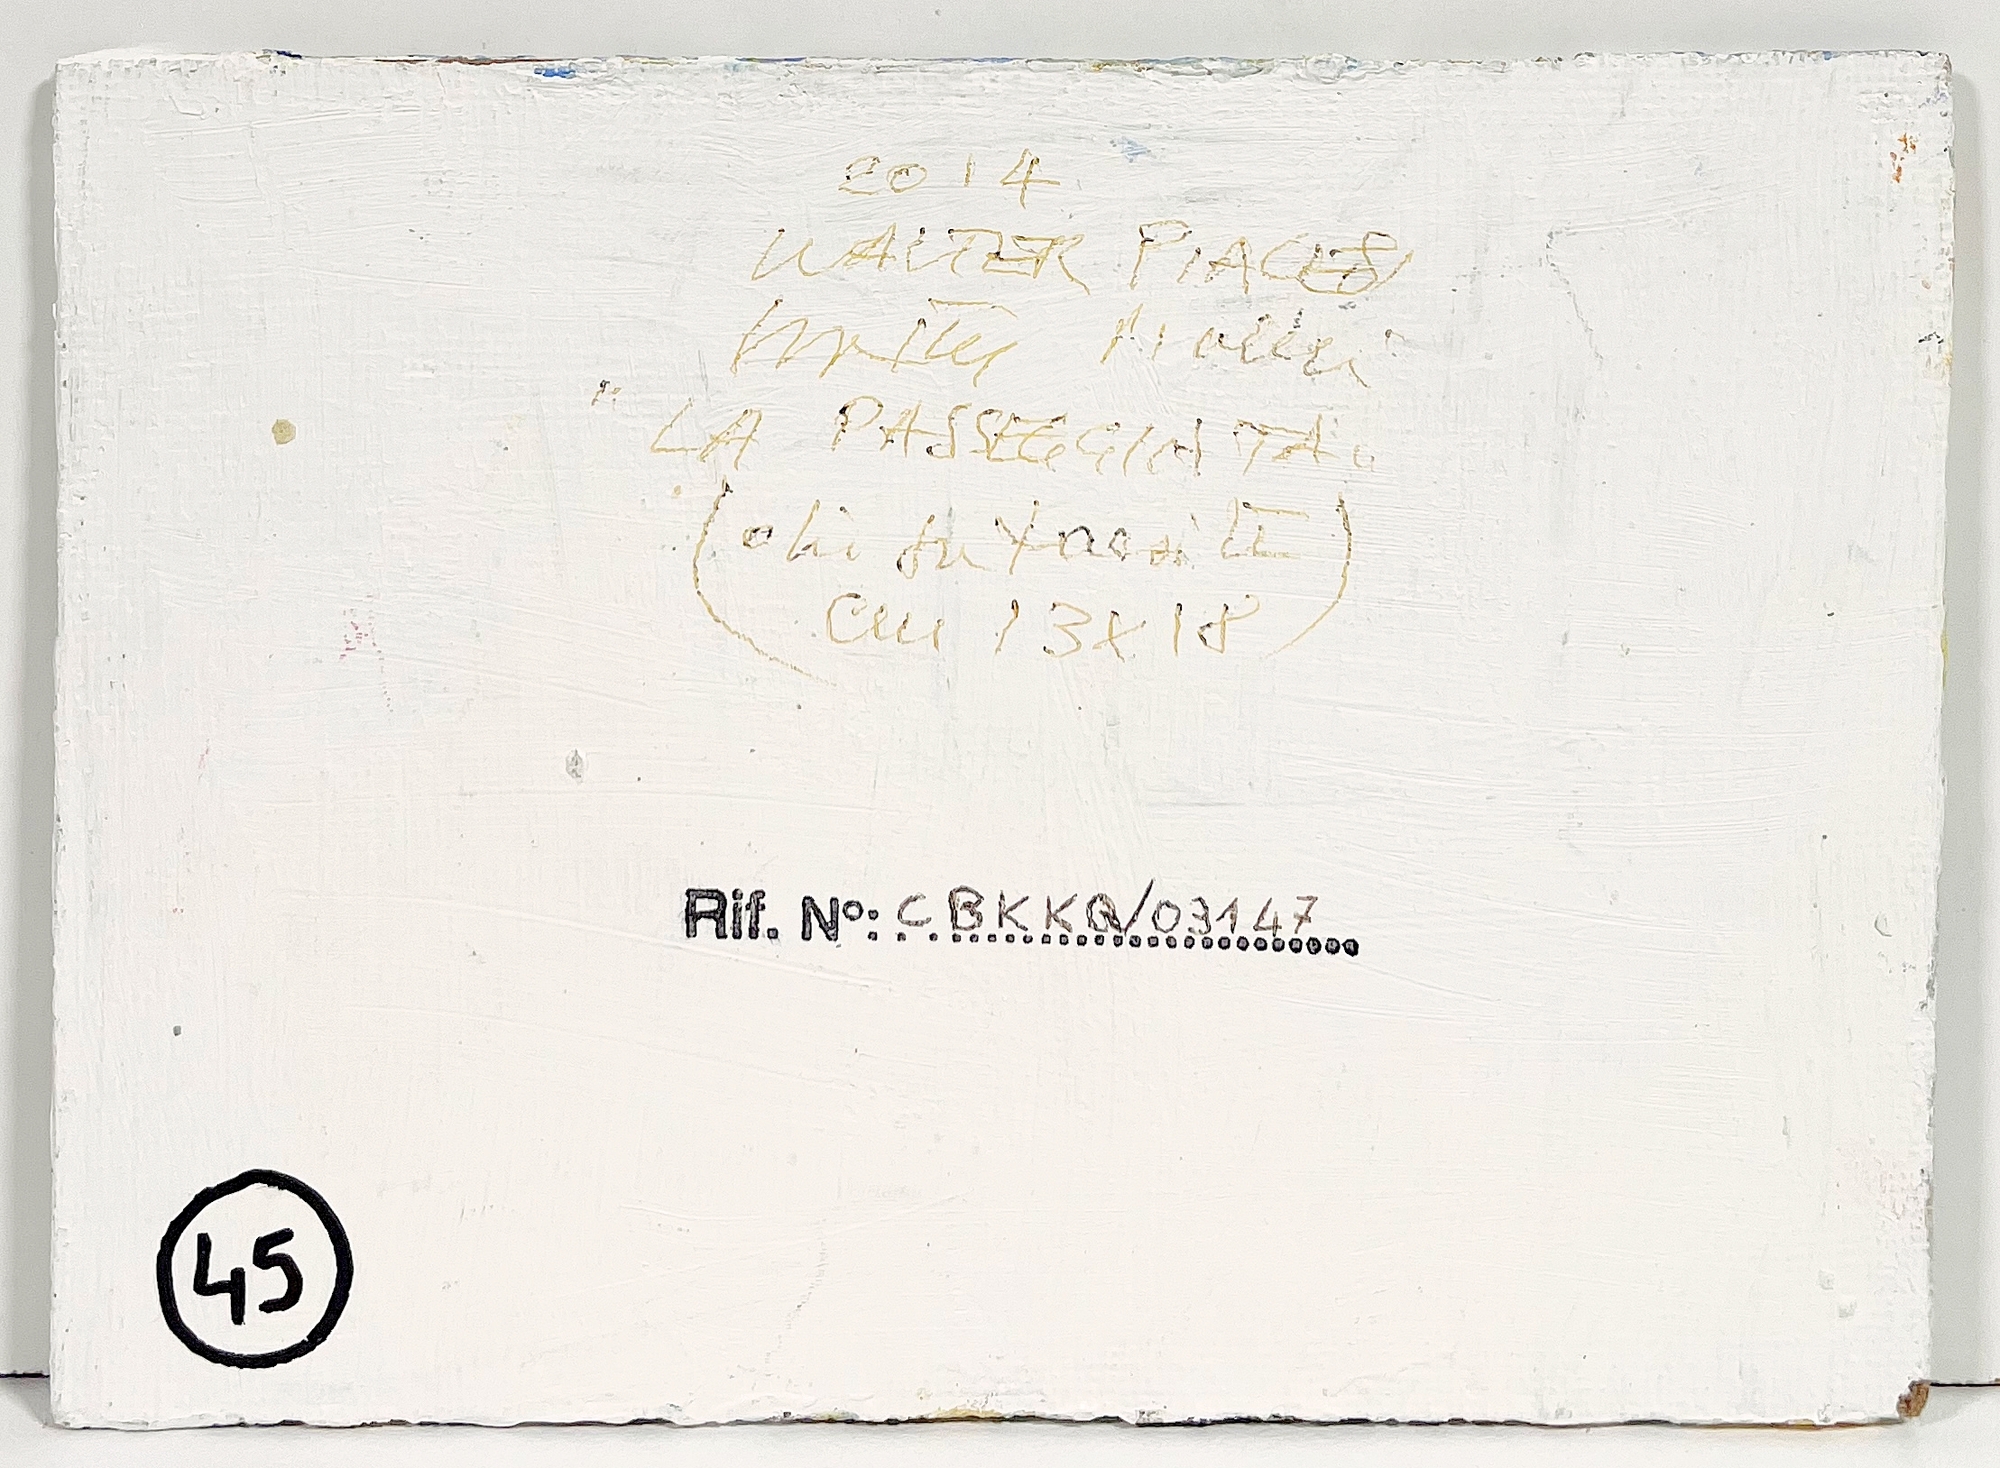 2014
WALTER PIACESI
Walter Piacesi
"LA PASSEGGIATA"
(olio su faesite
cm 13x18)
Rif. N°: CBKKQ/03147
45